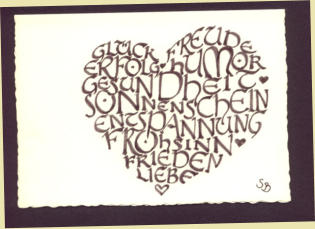 GLÜCK FREUDE
ERFOLG HUMOR
GESUNDHEIT
SONNENSCHEIN
ENTSPANNUNG
FROHSINN
FRIEDEN
LIEBE
SB